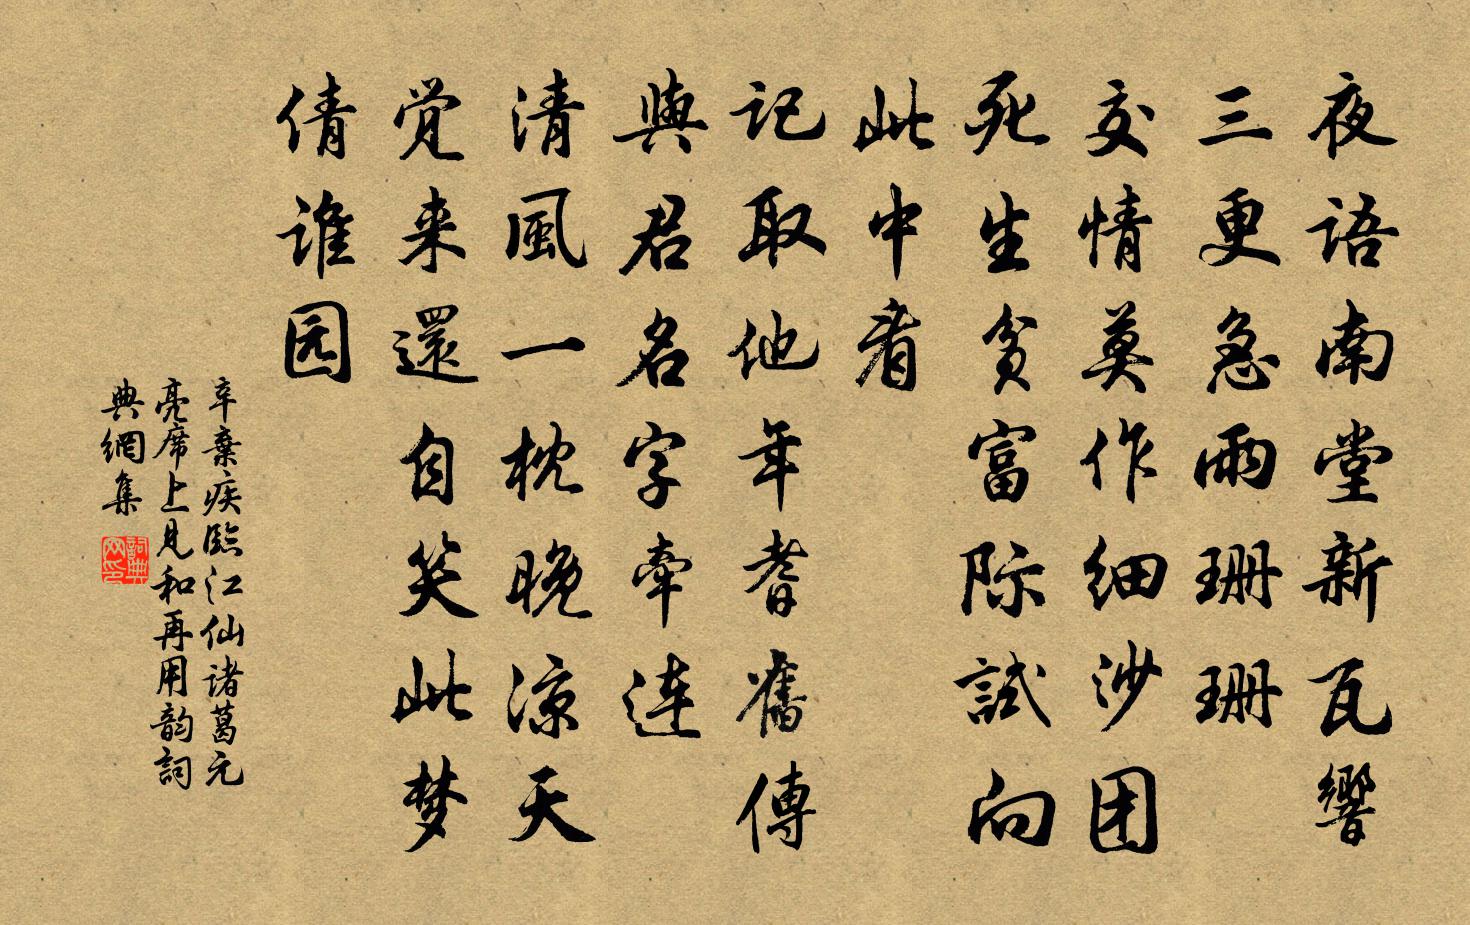 夜语南堂新瓦響
三更急雨珊珊
交情莫作细沙团
死生贫富际試向
此中看
记取他年耆舊傳
與君名字牵连
清風一枕晚凉天
觉来還自笑此梦
倩谁园
辛棄疾臨江仙诸葛元
亮席上見和再用韵詞
典網集
詞典网印